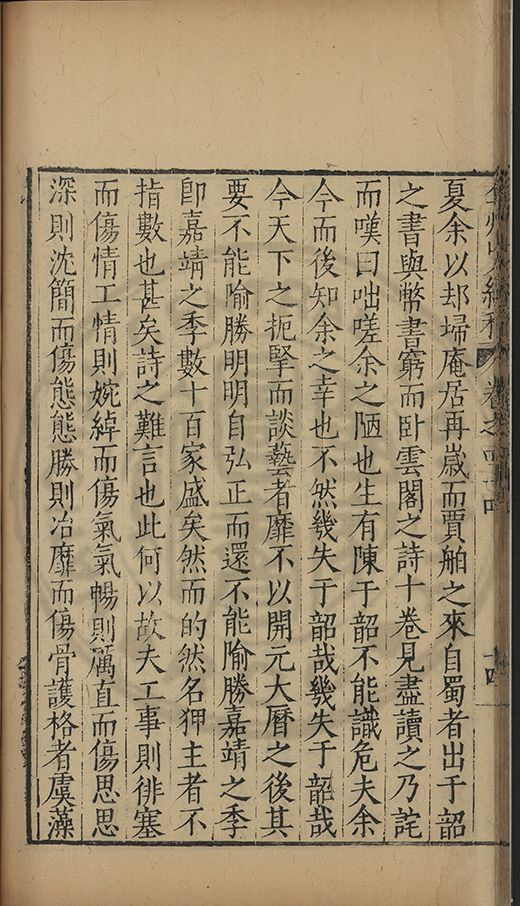 夏余以却埽庵居再歲而賈舶之來自蜀者出于韶
之書與幣書窮而卧雲閣之詩十卷見盡讀之乃詫
而嘆曰咄嗟余之陋也生有陳于韶不能識危夫余
今而後知余之幸也不然幾失于韶哉幾失于韶哉
今天下之扼掔而談藝者靡不以開元大曆之後其
要不能喻勝明明自弘正而還不能喻勝嘉靖之季
卽嘉靖之季數十百家盛矣然而的然名狎主者不
指數也甚矣詩之難言也此何以故夫工事則徘塞
而傷情工情則婉綽而傷氣氣暢則厲直而傷思思
深則沈簡而傷態態勝則冶靡而傷骨護格者虞藻